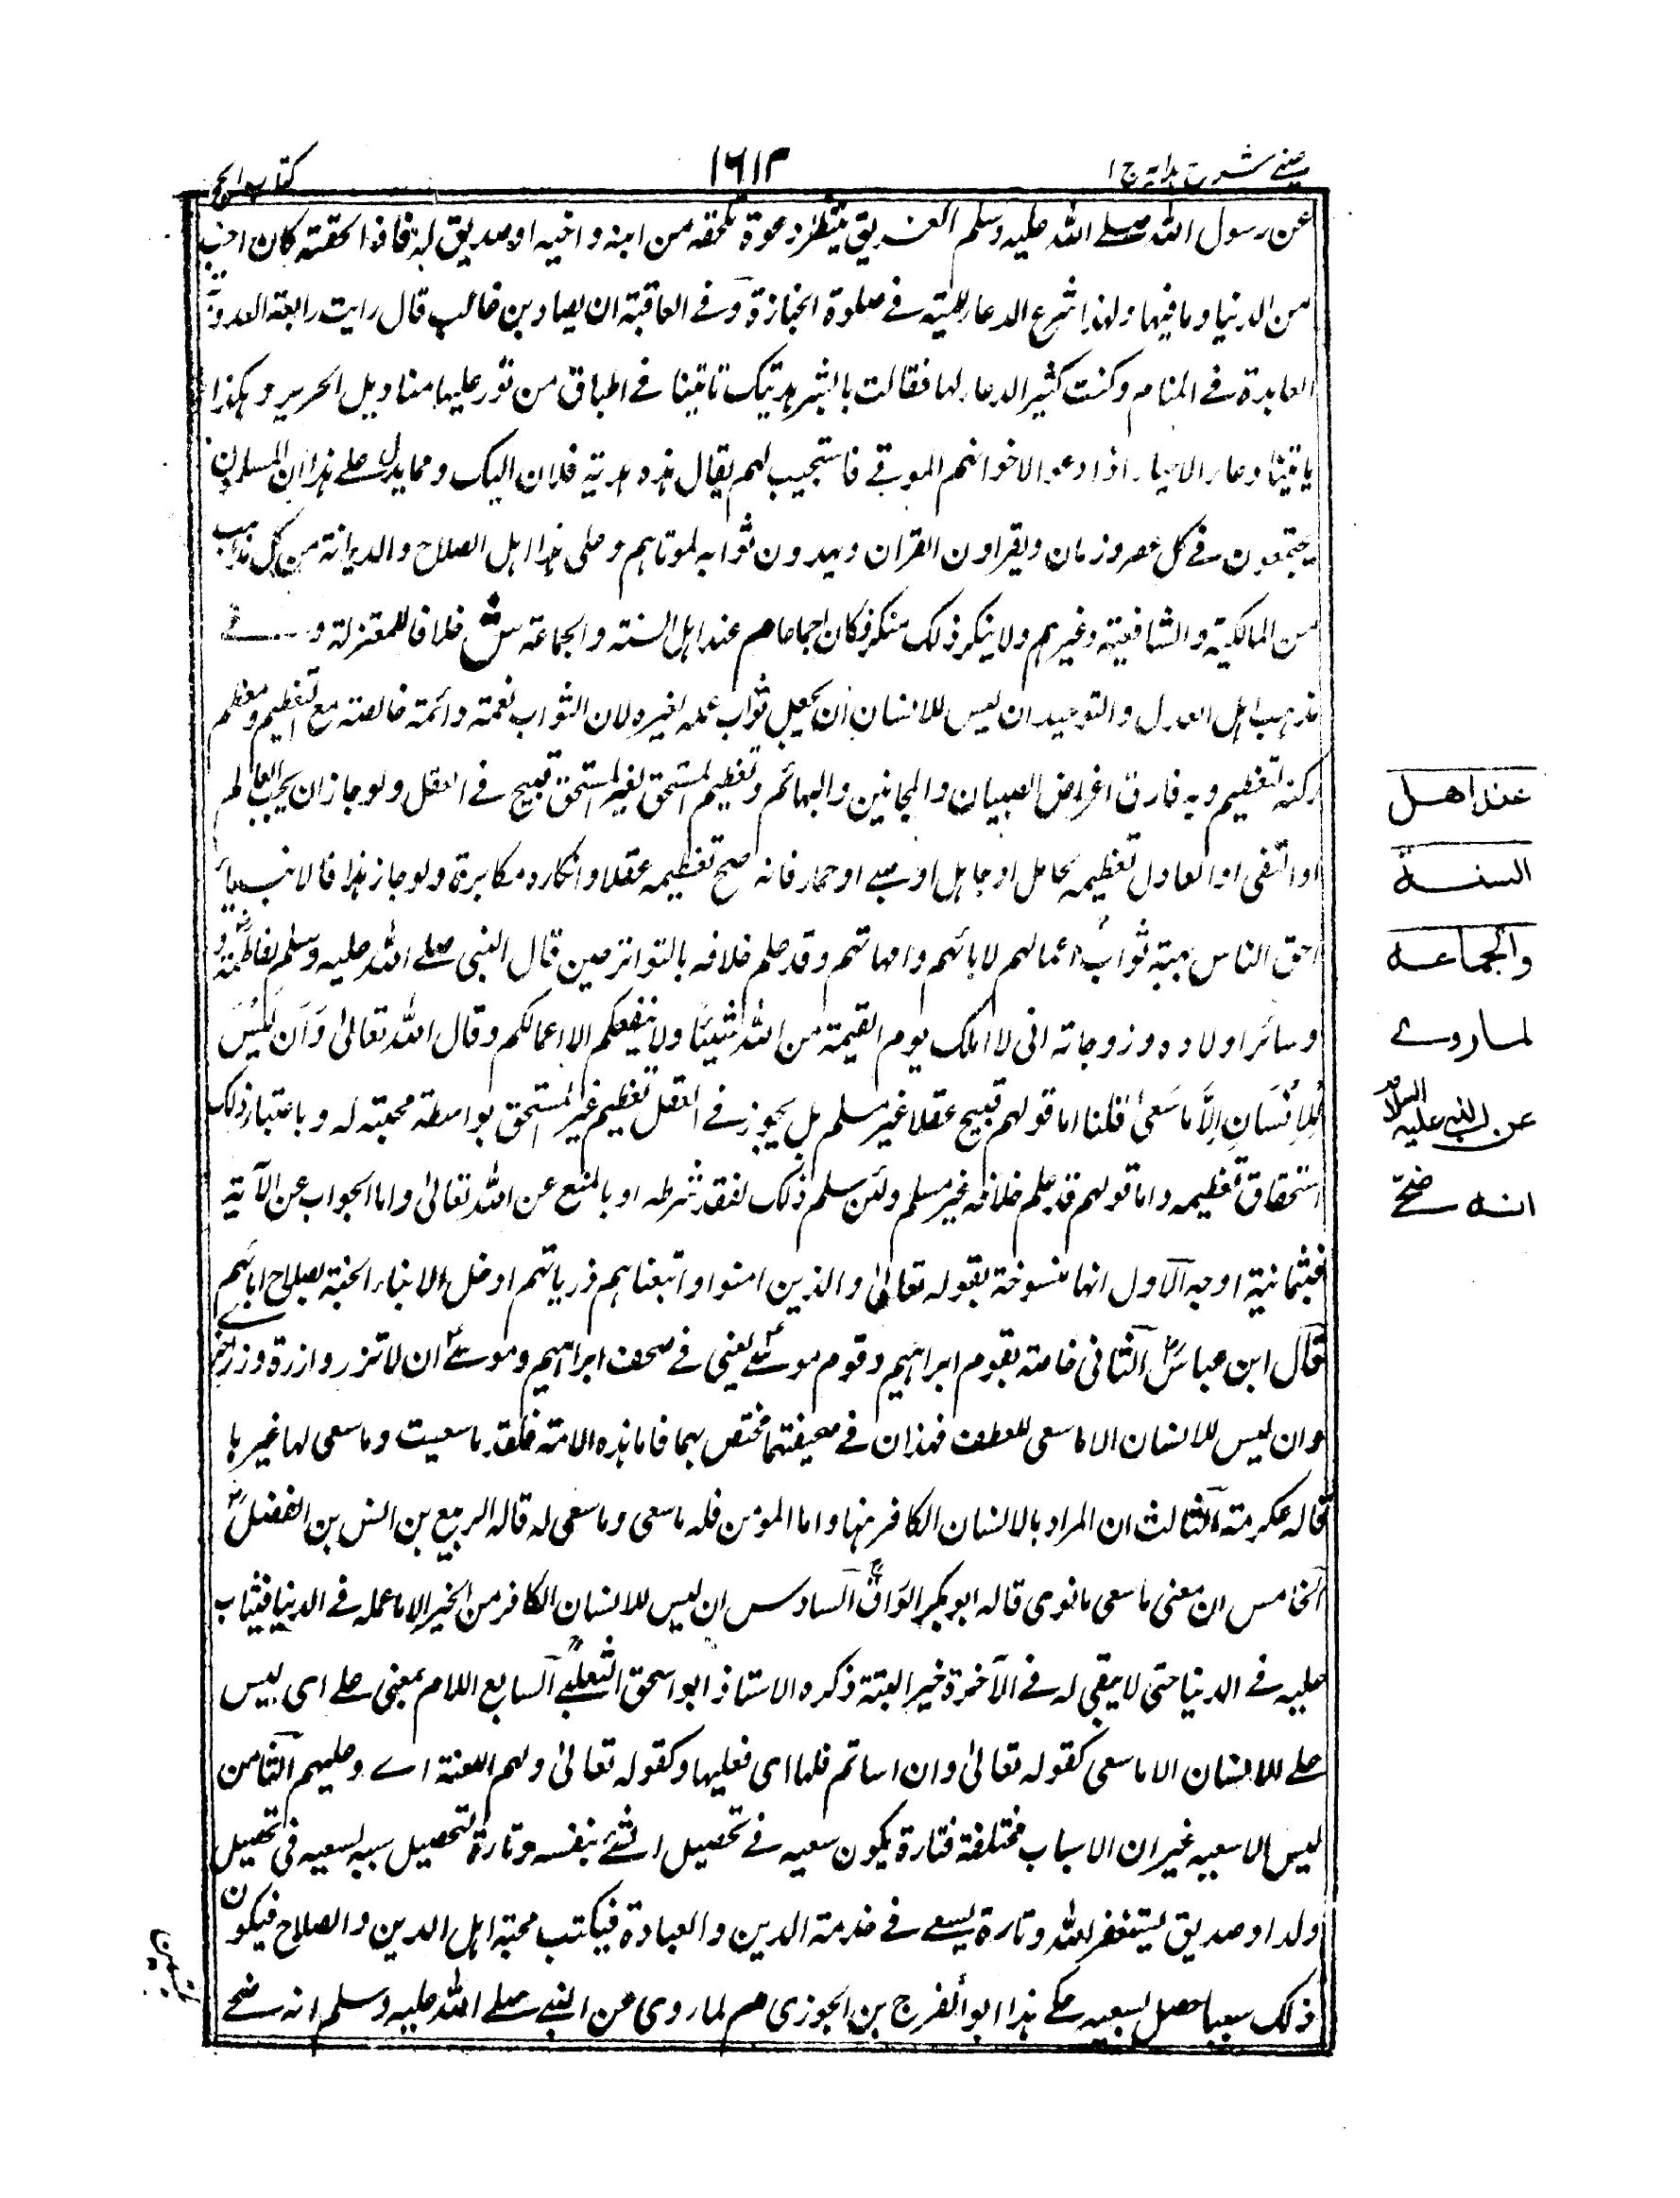 عینی شرح ہدایہ ج ۱
۱۶۱۲
کتاب الحج
عن رسول الله صلے الله علیه وسلم الغریق ینتظر دعوة تلحقه من ابنه و اخیه او صدیق له فاذا لحقته کان احب
من الدنیا وما فیها ولهذا شرع الدعاء للمیت فے صلوة الجنازة وفے العاقبة ان یصار بن غالب قال رایت رابعة العدویة
العابدة فے المنام وکنت کثیر الدعاء لها فقالت یا بشر هدیتک تاتینا فے اطباق من نور علیها منادیل الحریر وهکذا
یاتینا دعاء الاحیاء اذا دعوا لاخوانهم الموتے فاستجیب لهم یقال هذه هدیة فلان الیک ومما یدل علے هذا ان المسلمین
یجتمعون فے کل عصر و زمان ویقراون القران ویهدون ثوابه لموتاهم وعلی هذا اهل الصلاح والدیانة من کل مذهب
من المالکیة والشافعیة وغیرهم ولا ینکر ذلک منکر فکان اجماعا م عند اهل السنة والجماعة ش خلافا للمعتزلة و فے
مذهب اهل العدل والتوحید ان لیس للانسان ان یجعل ثواب عمله لغیره لان الثواب نعمة دائمة خالصة مع التعظیم ومعظم
رکنه تعظیم وبه فارق اغراض الصبیان والمجانین والبهائم وتعظیم المستحق لغیر المستحق قبیح فے العقل ولو جاز ان یجب العالم
او التقی او العادل تعظیمه لحامل او جاهل او صبے او حمار فانه صح تعظیمه عقلا و انکاره مکابرة ولو جاز هذا فالانبیاء
احق الناس هبة ثواب اعمالهم لابائهم وامهاتهم وقد علم خلافه بالتواتر حین قال النبی صلے الله علیه وسلم لفاطمة و
وسائر اولاده و زوجاته انی لا املک یوم القیمة من الله شیئا ولا ینفعکم الا اعمالکم وقال الله تعالیٰ وَاَن لَّیسَ
لِلاِنسَانِ اِلَّا مَا سَعیٰ قلنا اما قولهم قبیح عقلا غیر مسلم بل یجوز فے العقل تعظیم غیر المستحق بواسطة محبته له وباعتبار ذلک
استحقاق تعظیمه واما قولهم قد علم خلافه غیر مسلم ولئن سلم ذلک لفقد شرطه او بالمنع عن الله تعالیٰ واما الجواب عن الآیة
فبثمانیة اوجه الاول انها منسوخة بقوله تعالیٰ والذین امنوا واتبعناهم ذریاتهم ادخل الابناء الجنة بصلاح ابائهم
قال ابن عباس الثانی خاصة بقوم ابراهیم وقوم موسےٰ یعنی فے صحف ابراهیم وموسےٰ ان لا تزر وازرة وزر اخرے
وان لیس للانسان الا ما سعی للعطف فهذان فے صحیفتهما مختص بهما فاما هذه الامة فلقد ما سعیت وما سعی لها غیرها
قاله عکرمة الثالث ان المراد بالانسان الکافر منها واما المؤمن فله ما سعی وما سعی له قاله الربیع بن انس بن الفضل
الخامس ان معنی ما سعی ما نوی قاله ابوبکر الوراق السادس ان لیس للانسان الکافر من الخیر الا ما عمله فے الدنیا فیثاب
علیه فے الدنیا حتی لا یبقی له فے الآخرة خیر البتة ذکره الاستاذ ابو اسحق الثعلبے السابع اللام بمعنی علے ای لیس
علے للانسان الا ما سعی کقوله تعالیٰ وان اساتم فلها ای فعلیها وکقوله تعالیٰ ولهم اللعنة اے وعلیهم الثامن
لیس الا سعیه غیر ان الاسباب مختلفة فتارة یکون سعیه فے تحصیل الشئ بنفسه وتارة لتحصیل سببه لسعیه فی تحصیل
ولد او صدیق یستغفر الله وتارة یسعے فے خدمة الدین والعبادة فیکتب محبة اهل الدین والصلاح فیکون
ذلک سببا حصل لسعیه حکے هذا ابو الفرج بن الجوزی م لما روی عن النبے صلے الله علیه وسلم انه ضحے
عند اهل
السنة
والجماعة
لما روے
عن النبے علیه السلام
انه ضحّے